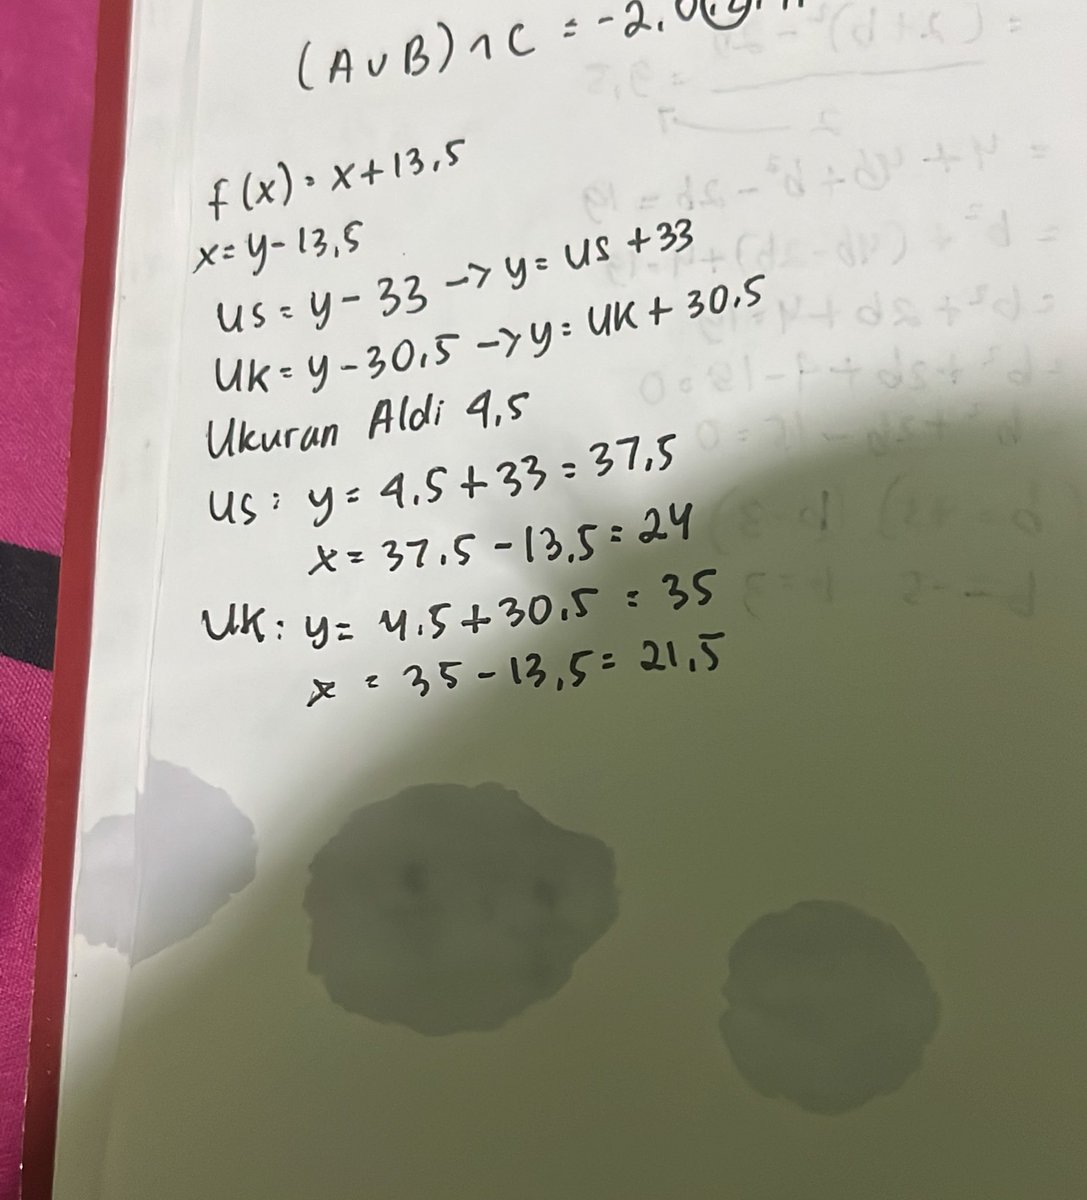 (A ∪ B) ∩ C = -2,0
f(x) = x + 13,5
x = y - 13,5
US = y - 33 -> y = US + 33
UK = y - 30,5 -> y = UK + 30,5
Ukuran Aldi 4,5
US : y = 4,5 + 33 = 37,5
x = 37,5 - 13,5 = 24
UK : y = 4,5 + 30,5 = 35
x = 35 - 13,5 = 21,5